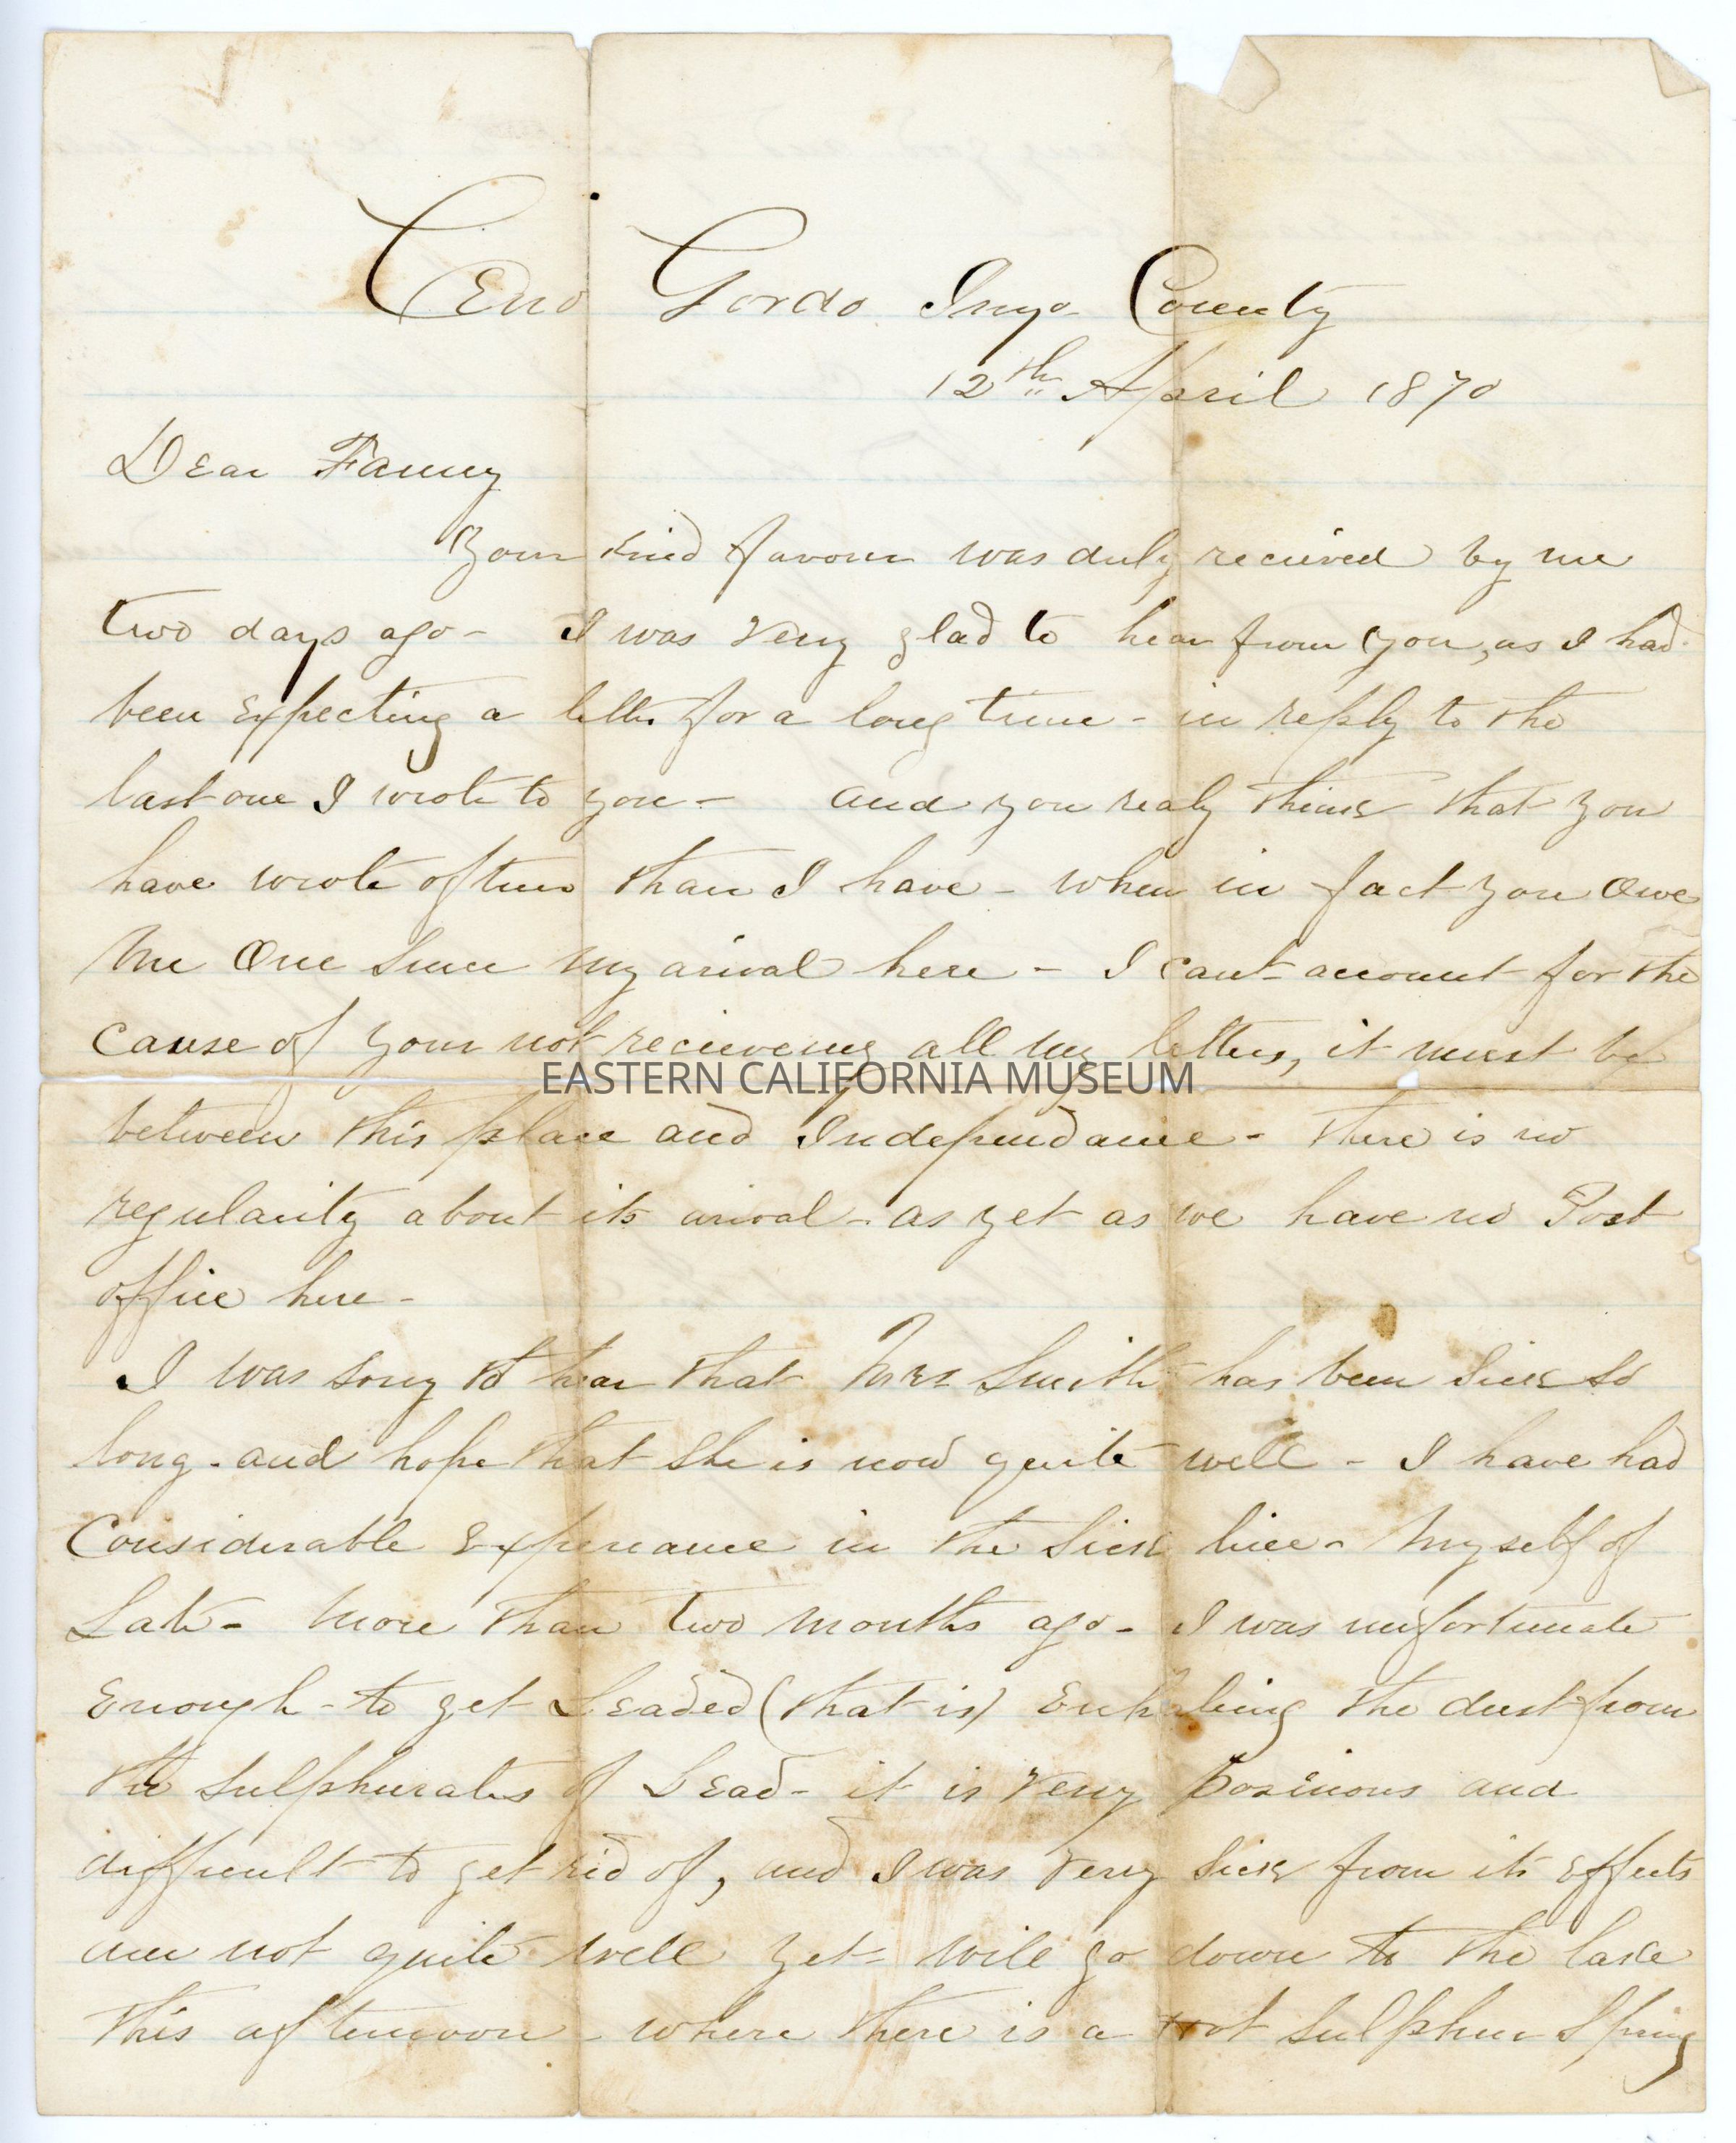 Cerro Gordo Inyo County
12th April 1870
Dear Fanny
Your kind favour was duly recieved by me
two days ago - I was very glad to hear from you, as I had
been expecting a letter for a long time - in reply to the
last one I wrote to you - and you realy think that you
have wrote oftener than I have - when in fact you owe
me one since my arival here - I cant account for the
cause of your not recieveing all my letters, it must be
EASTERN CALIFORNIA MUSEUM
between this place and Independance - there is no
regularity about its arival - as yet as we have no Post
office here -
I was sorry to hear that Mrs Smith has been sick so
long - and hope that she is now quite well - I have had
Considerable Experiance in the sick line - myself of
Late - more than two months ago - I was unfortunate
Enough - to get Leaded (that is) Enhaleing the dust from
the sulphurates of Lead - it is very posinous and
difficult to get rid of, and I was very sick from its effects
am not quite well yet - will go down to the lake
this afternoon - where there is a Hot Sulphur Spring